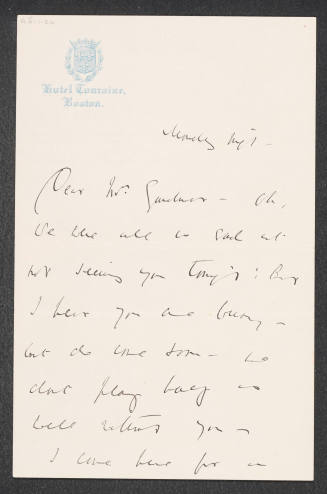 Hotel Touraine,
Boston.
Monday
Dear Mrs Gardner - Oh,
we are all so sad at
not seeing you tonight: But
I hear you are
but do come soon - we
don't play half as
well without you -
I here for a